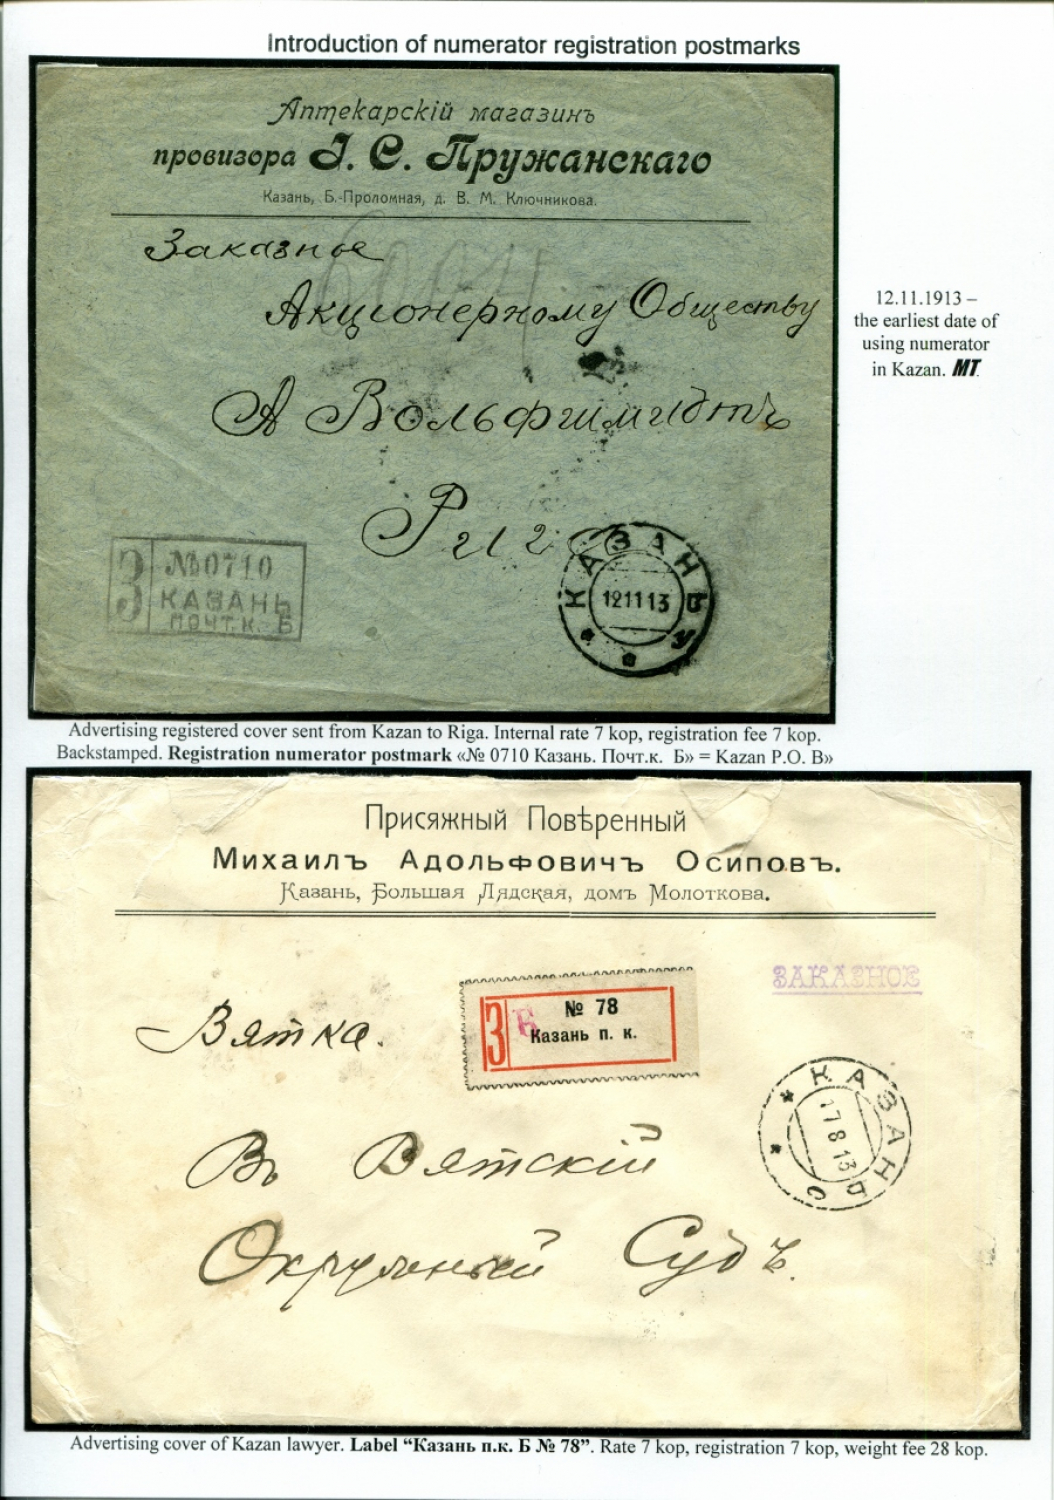 Introduction of numerator registration postmarks
Аптекарскій магазинъ
провизора І. С. Пружанскаго
Казань, Б.-Проломная, д. В. М. Ключникова.
Заказное
Акціонерному Обществу
А Вольфшмидтъ
Рига
З №0710
КАЗАНЬ
ПОЧТ.К. Б
КАЗАНЬ У
121113
12.11.1913 –
the earliest date of
using numerator
in Kazan. МТ
Advertising registered cover sent from Kazan to Riga. Internal rate 7 kop, registration fee 7 kop.
Backstamped. Registration numerator postmark «№ 0710 Казань. Почт.к. Б» = Kazan P.O. B»
Присяжный Повѣренный
Михаилъ Адольфовичъ Осиповъ.
Казань, Большая Лядская, домъ Молоткова.
ЗАКАЗНОЕ
Вятка.
З Б № 78
Казань п. к.
КАЗАНЬ С
17 8 13
Въ Вятскій
Окружный Судъ.
Advertising cover of Kazan lawyer. Label “Казань п.к. Б № 78”. Rate 7 kop, registration 7 kop, weight fee 28 kop.